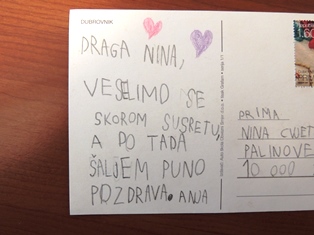 DUBROVNIK
DRAGA NINA,
VESELIMO SE
SKOROM SUSRETU,
A DO TADA
ŠALJEM PUNO
POZDRAVA. ANJA
PRIMA
NINA
PALINOVE
10 000